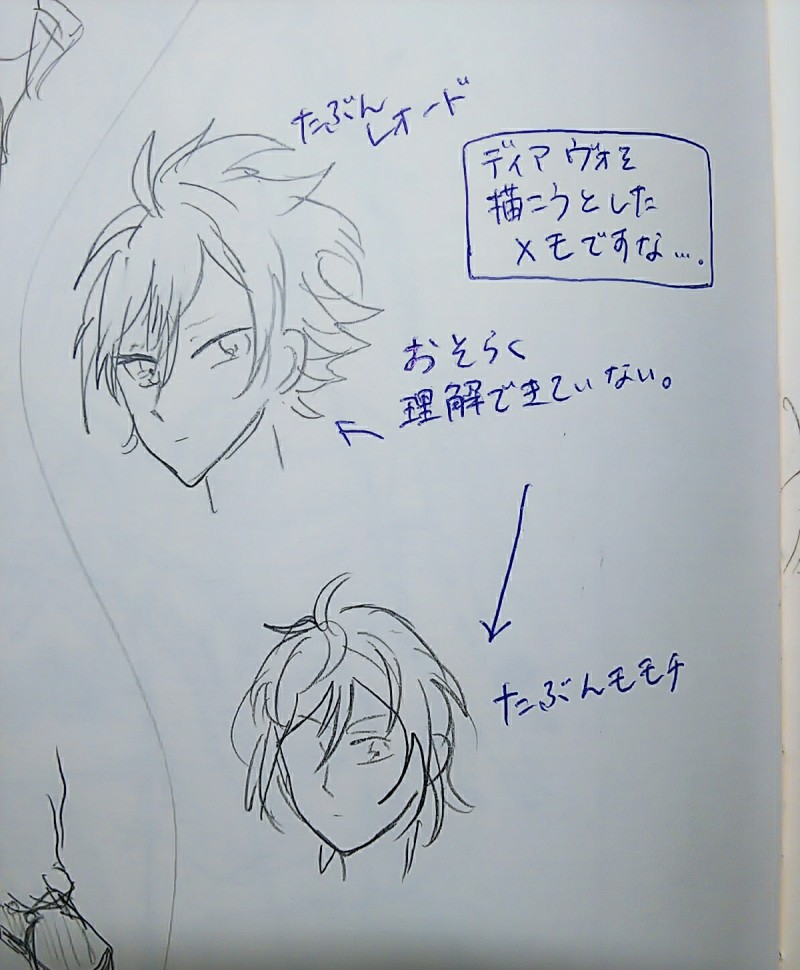 たぶん
レオード
ディアヴォを
描こうとした
メモですな….
おそらく
理解できていない。
たぶんモモチ